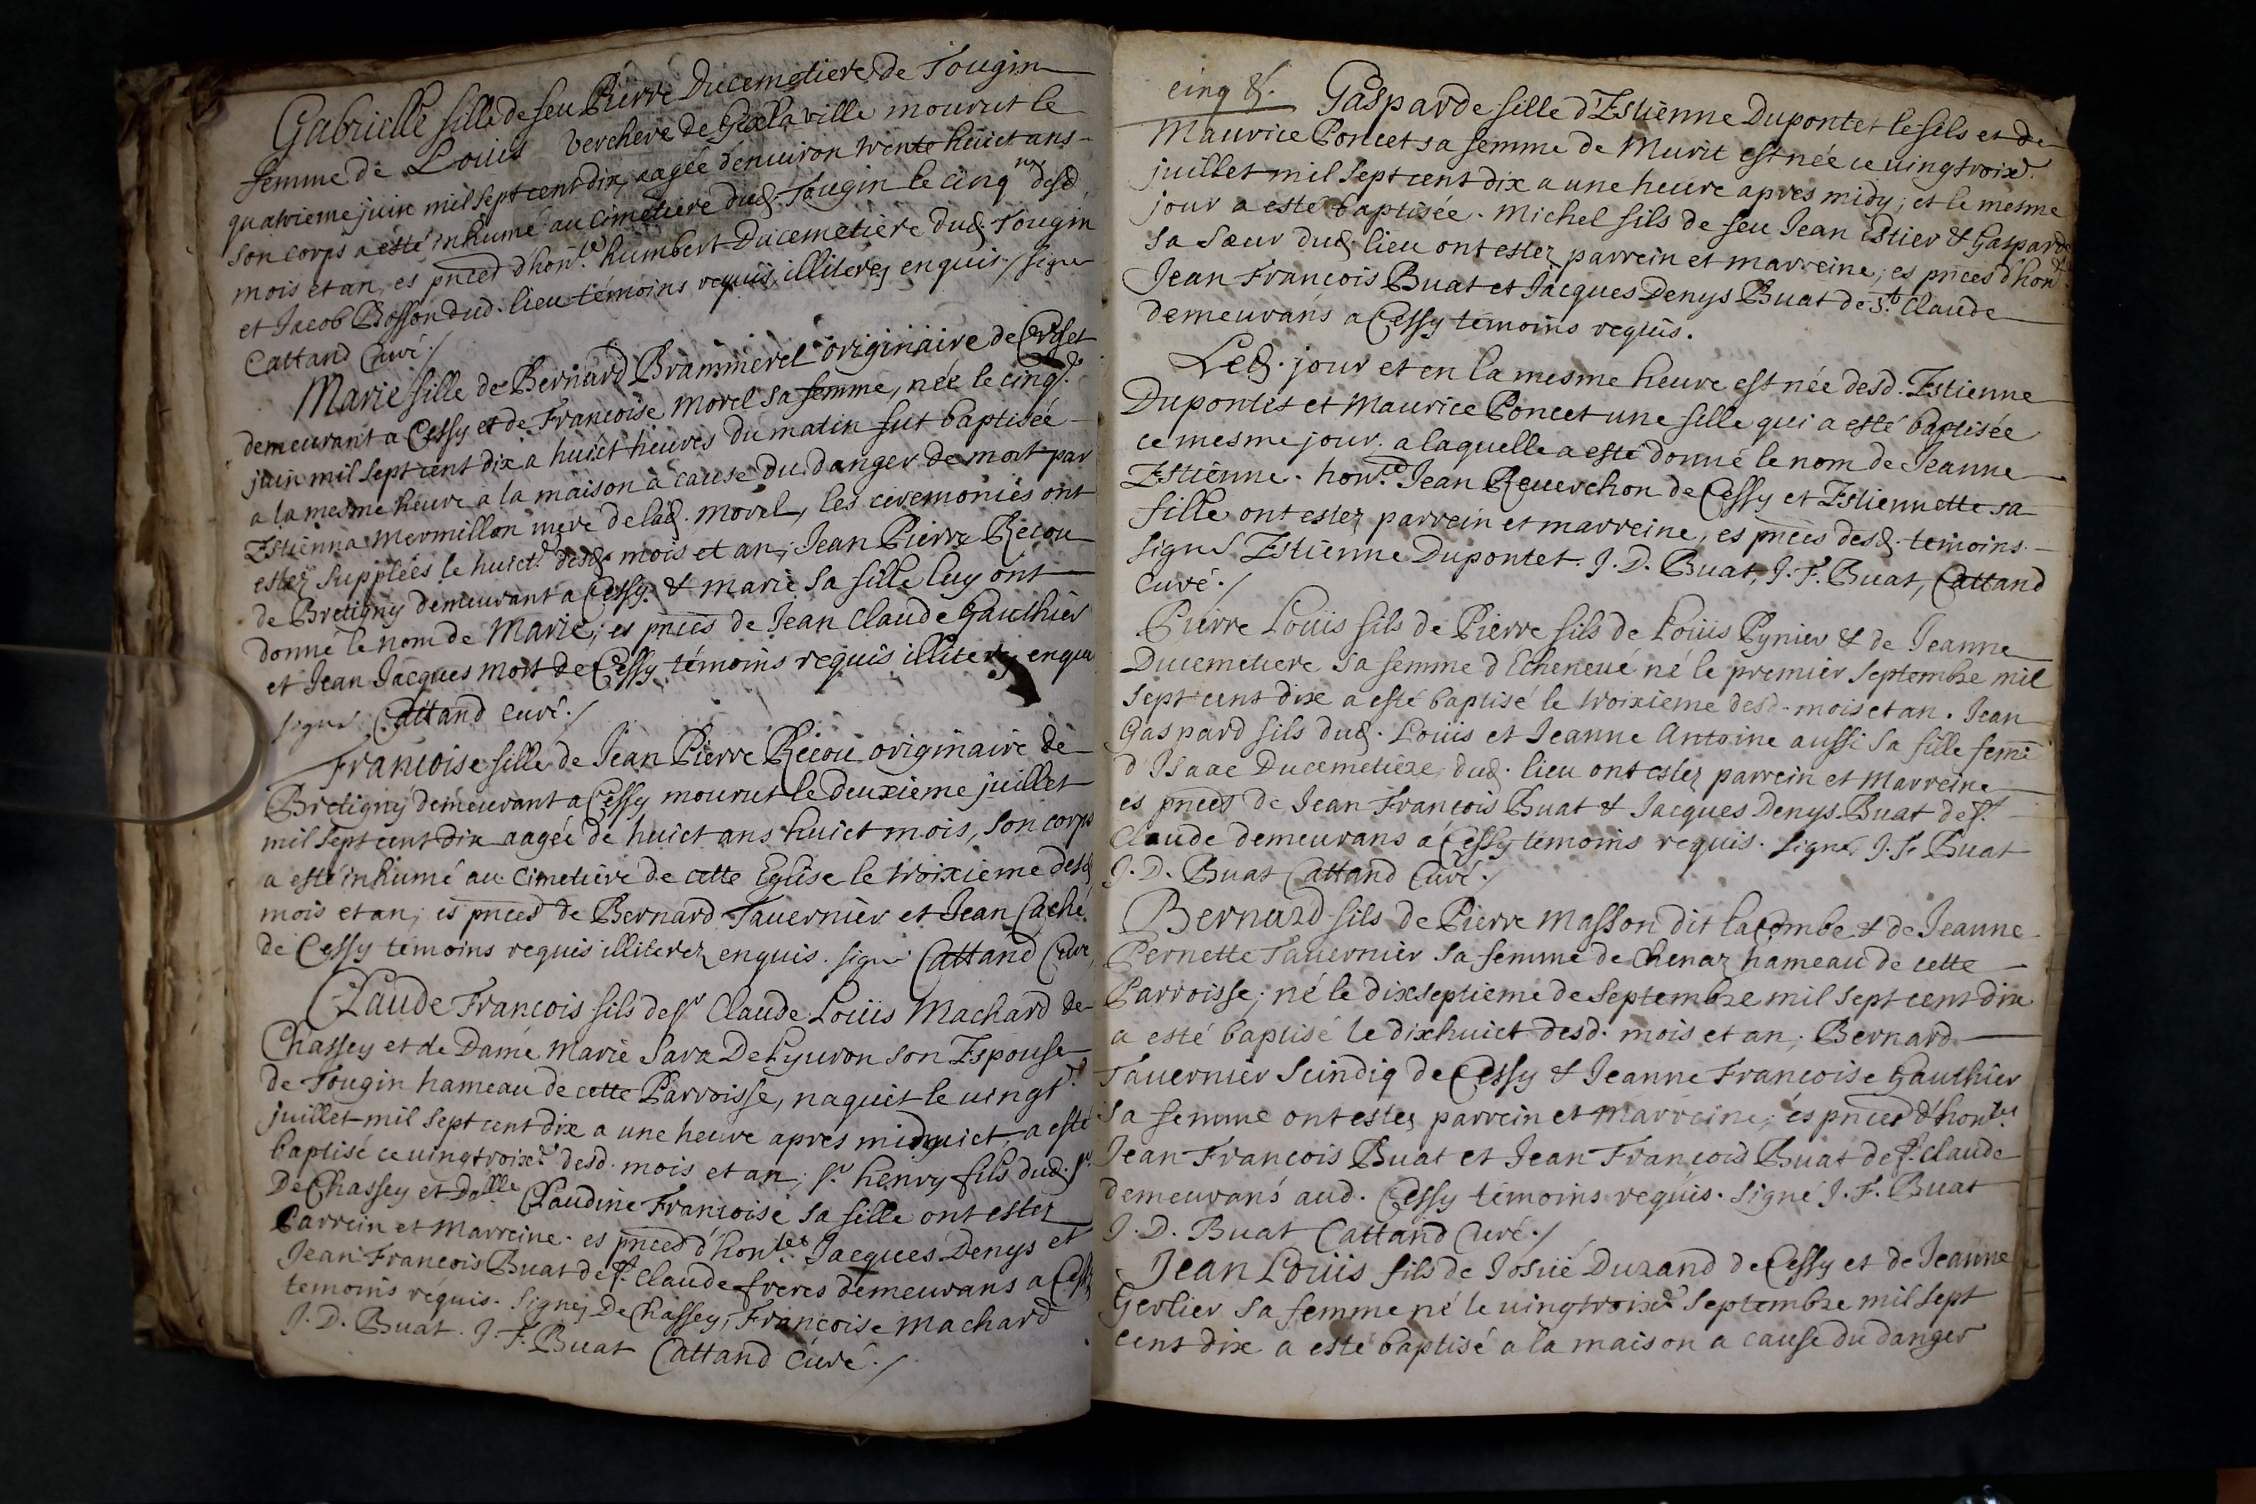 Gabrielle fille de feu Pierre Ducemetiere de Tougin
femme de Louis Verchere de Gex la ville mourut le
quatrieme juin mil sept cent dix, aagée d'enuiron trente huict ans
son corps a esté inhumé au cimetiere dud. Tougin le cinqme desd.
mois et an, es pnces d'honble humbert Ducemetiere dud. Tougin
et Jacob Bosson dud. lieu témoins requis illiterez enquis / signé
Cattand Curé ./
Marie fille de Bernard Brammerel originaire de
demeurant a Cessy et de Francoise Morel sa femme, née le cinqe
juin mil sept cent dix a huict heures du matin fut baptisée
a la mesme heure a la maison à cause du danger de mort par
Estienna Mermillon mere de lad. Morel, les ceremonies ont
estez supplées le huicte desd. mois et an; Jean Pierre Recou
de Bretigny demeurant a Cessy & Marie sa fille luy ont
donné le nom de Marie; es pnces de Jean Claude Gauthier
et Jean Jacques Mort de Cessy témoins requis illiterez enquis
signé Cattand curé ./
Francoise fille de Jean Pierre Recou originaire de
Bretigny demeurant a Cessy mourut le deuxieme juillet
mil sept cent dix aagée de huict ans huict mois, son corps
a esté inhumé au Cimetiere de cette Eglise le troixieme desd.
mois et an; es pnces de Bernard Tauernier et Jean Caché
de Cessy témoins requis illiterez enquis. signé Cattand Curé
Claude Francois fils de sr Claude Loüis Machard de
Chassey et de Dame Marie Sara De Lyuron son Espouse
de Tougin hameau de cette Parroisse, naquit le uingte
juillet mil sept cent dix a une heure apres minuict, a esté
baptisé ce uingtroixe desd. mois et an; sr henry fils dud. sr
De Chassey et Dlle Claudine Francoise sa fille ont estez
Parrein et Marreine. es pnces d'honles Jacques Denys et
Jean Francois Buat de st. Claude freres demeurans a Cessy
temoins requis. Signez De Chassey, Francoise Machard
J. D. Buat. J. F. Buat Cattand Curé ./
cinq &.
Gasparde fille d'Estienne Dupontet le fils et de
Maurice Poncet sa femme de Murit est née ce uingtroixe
juillet mil sept cent dix a une heure apres midy; et le mesme
jour a esté baptisée. Michel fils de feu Jean Estier & Gasparde
sa sœur dud. lieu ont estez parrein et marreine; es pnces d'honles
Jean Francois Buat et Jacques Denys Buat de St. Claude
demeurans a Cessy temoins requis.
Led. jour et en la mesme heure est née desd. Estienne
Dupontet et Maurice Poncet une fille qui a esté baptisée
ce mesme jour. a laquelle a esté donné le nom de Jeanne
Estienne. honble Jean Reuerchon de Cessy et Estiennette sa
fille ont estez parrein et marreine, es pnces desd. temoins.
signé Estienne Dupontet. J. D. Buat, J. F. Buat, Cattand
Curé ./
Pierre Loüis fils de Pierre fils de Loüis Pynier & de Jeanne
Ducemetiere sa femme d'Echeneué né le premier septembre mil
sept cent dix a esté baptisé le troixieme desd. mois et an. Jean
Gaspard fils dud. Louis et Jeanne Antoine aussi sa fille feme
d'Isaac Ducemetiere, dud. lieu ont estez parrein et Marreine
es pnces de Jean Francois Buat & Jacques Denys Buat de st.
Claude demeurans a Cessy temoins requis. signé J. F. Buat
J. D. Buat Cattand Curé ./
Bernard fils de Pierre Masson dit la Combe & de Jeanne
Pernette Tauernier sa femme de Chenaz hameau de cette
Parroisse; né le dixseptieme de Septembre mil sept cent dix
a esté baptisé le dixhuict desd. mois et an; Bernard
Tauernier Scindiq de Cessy & Jeanne Francoise Gauthier
sa femme ont estez parrein et Marreine; és pnces d'honles
Jean Francois Buat et Jean Francois Buat de st. claude
demeurans aud. Cessy témoins requis. Signé J. F. Buat
J. D. Buat Cattand Curé ./
Jean Loüis fils de Josüé Durand de Cessy et de Jeanne
Gerlier sa femme né le uingtroixe Septembre mil sept
cent dix a esté baptisé a la maison a cause du danger